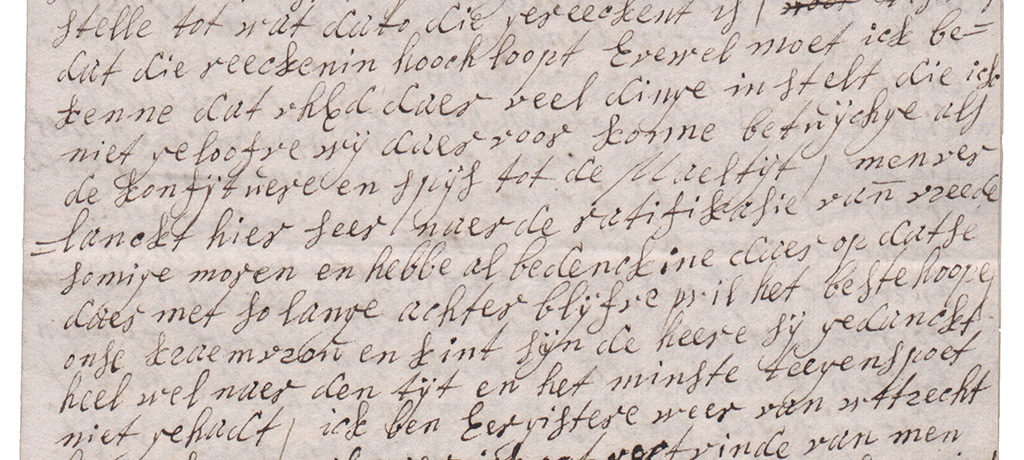 stelle tot wat dato die gereeckent is /
dat die reeckenin hooch loopt Evewel moet ick be=
kenne dat vhEd daer veel dinge in stelt die ick
niet geloofve wij daer voor konne betuijchge als
de konfijtuere en spijs tot de Maeltijt / men ver
=lanckt hier seer naer de ratifikasie van vreede
somige moren en hebbe al bedenckine daer op datse
daer met so lange achter blijfve wil het beste hoope
onse kraemvrou en kint sijn de heere sij gedanckt
heel wel naer den tijt en het minste teegenspoet
niet gehadt / ick ben Eergistere weer van uttrecht
vrinde van men